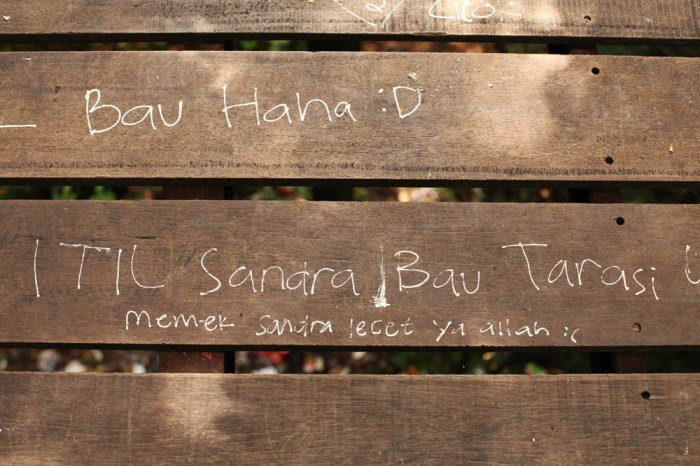 Bau Hana :D
ITIL Sandra Bau Tarasi
mem-ek sandra lecet ya allah :(